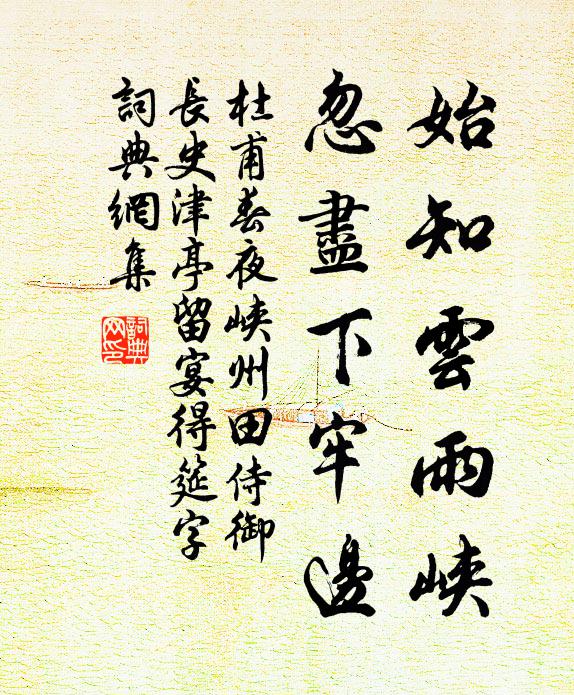 始知雲雨峽
忽盡下牢邊
杜甫春夜峽州田侍御
長史津亭留宴得筵字
詞典網集
詞典
网印